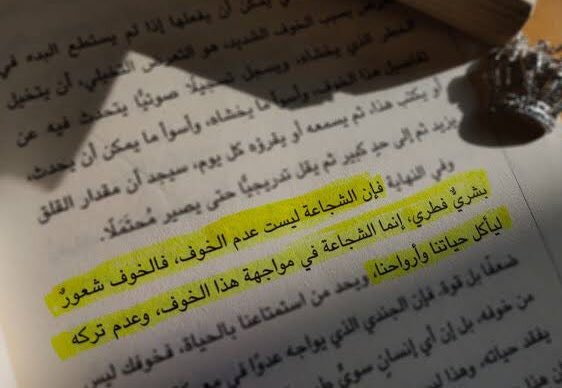 يمكن أن يفعلها إذا لم يستطع البدء في
بسبب الخوف الشديد، هو التعرض التخيلي، أن يتخيل
الخطر الذي يخشاه، ويسجل تسجيلًا صوتيًّا يتحدث فيه عن
تفاصيل هذا الخوف، وأسوأ ما يخشاه، وأسوأ ما يمكن أن يحدث،
أو يكتب هذا، ثم يسمعه أو يقرؤه كل يوم، سيجد أن مقدار القلق
يزيد ثم إلى حد كبير ثم يقل تدريجيًّا حتى يصير مُحتَمَلًا.
وفي النهاية فإن الشجاعة ليست عدم الخوف، فالخوف شعورٌ
بشريٌّ فطري، إنما الشجاعة في مواجهة هذا الخوف، وعدم تركه
ليأكل حياتنا وأرواحنا، ويحد من استمتاعنا بالحياة، فخوفك ليس
ضعفًا بل قوة. فإن الجندي الذي يواجه عدوًا في
من خوفه، بل إن أي إنسان سويٍّ
يفقد حياته، وهذا